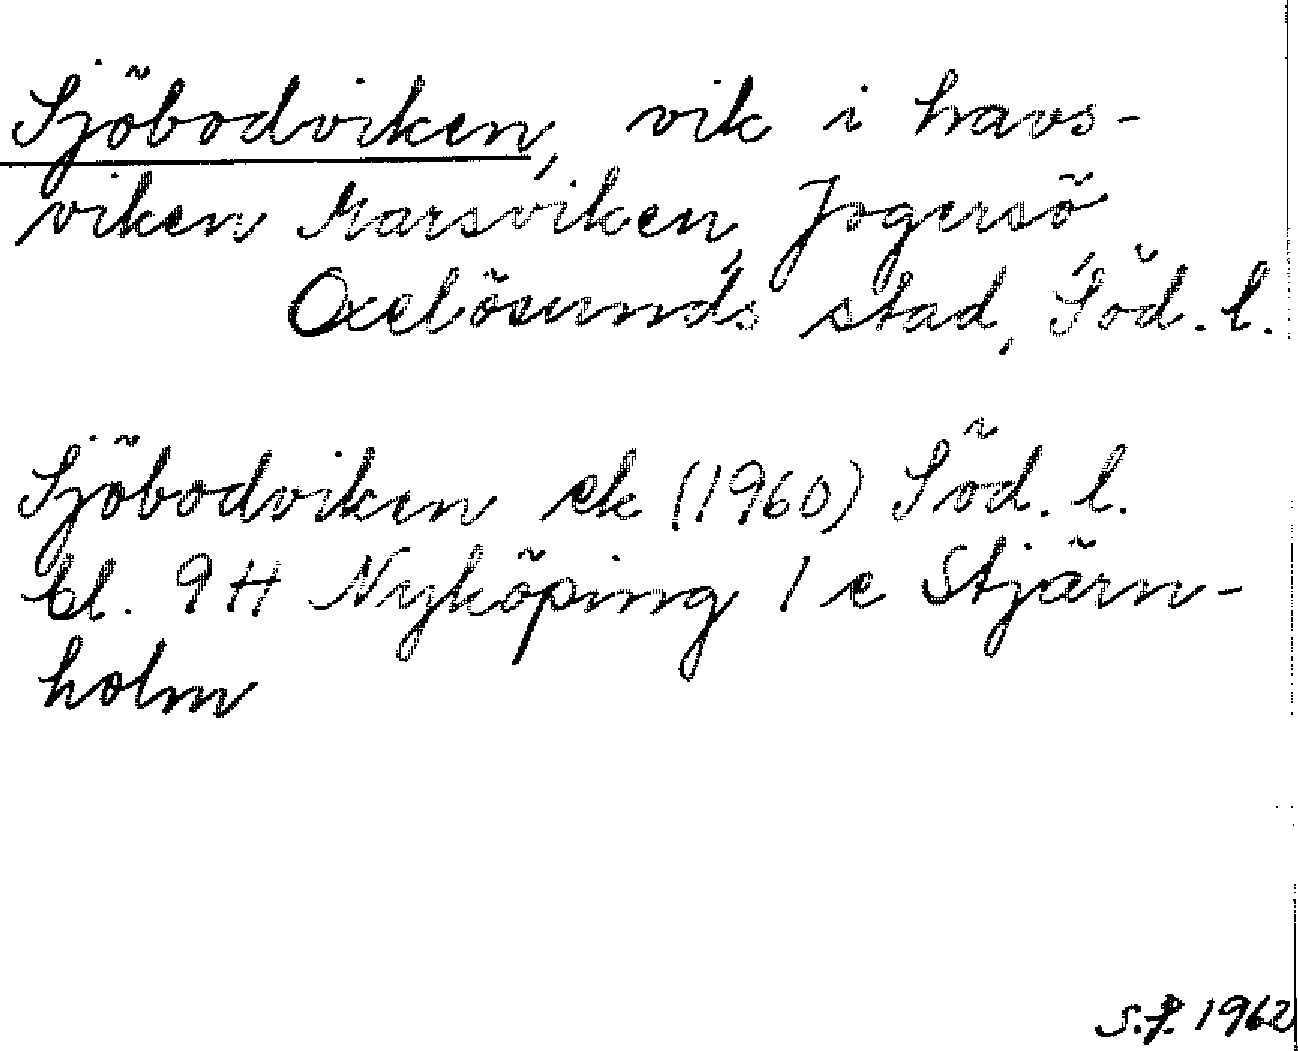 Sjöbodviken, vik i havs-
viken Marsviken, Jogersö,
Oxelösunds stad, Söd. l.
Sjöbodviken ek (1960) Söd. l.
bl. 9H Nyköping 1 c Stjärn-
holm
S.F. 1962